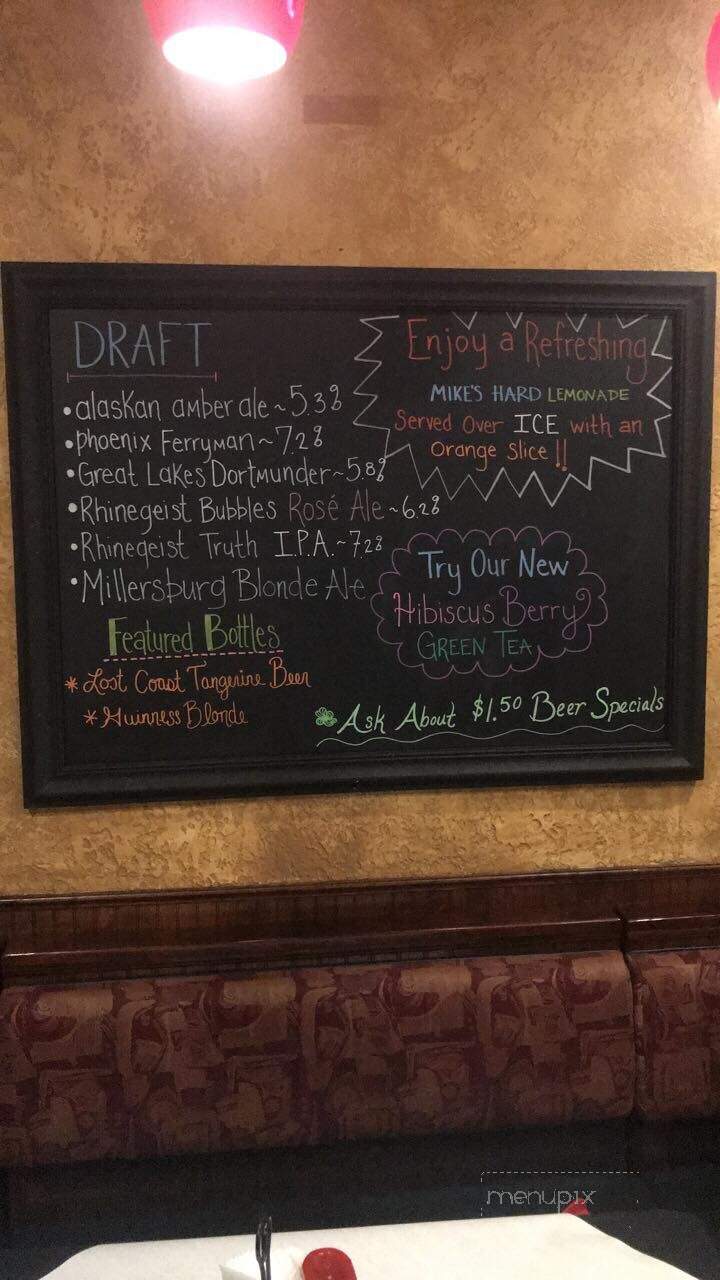 DRAFT
• alaskan amber ale ~ 5.3%
• phoenix Ferryman ~ 7.2%
• Great Lakes Dortmunder ~ 5.8%
• Rhinegeist Bubbles Rosé Ale ~ 6.2%
• Rhinegeist Truth I.P.A. ~ 7.2%
• Millersburg Blonde Ale
Featured Bottles
* Lost Coast Tangerine Beer
* Guinness Blonde
Enjoy a Refreshing
MIKE'S HARD LEMONADE
Served Over ICE with an
Orange Slice !!
Try Our New
Hibiscus Berry
GREEN TEA
Ask About $1.50 Beer Specials
menupix